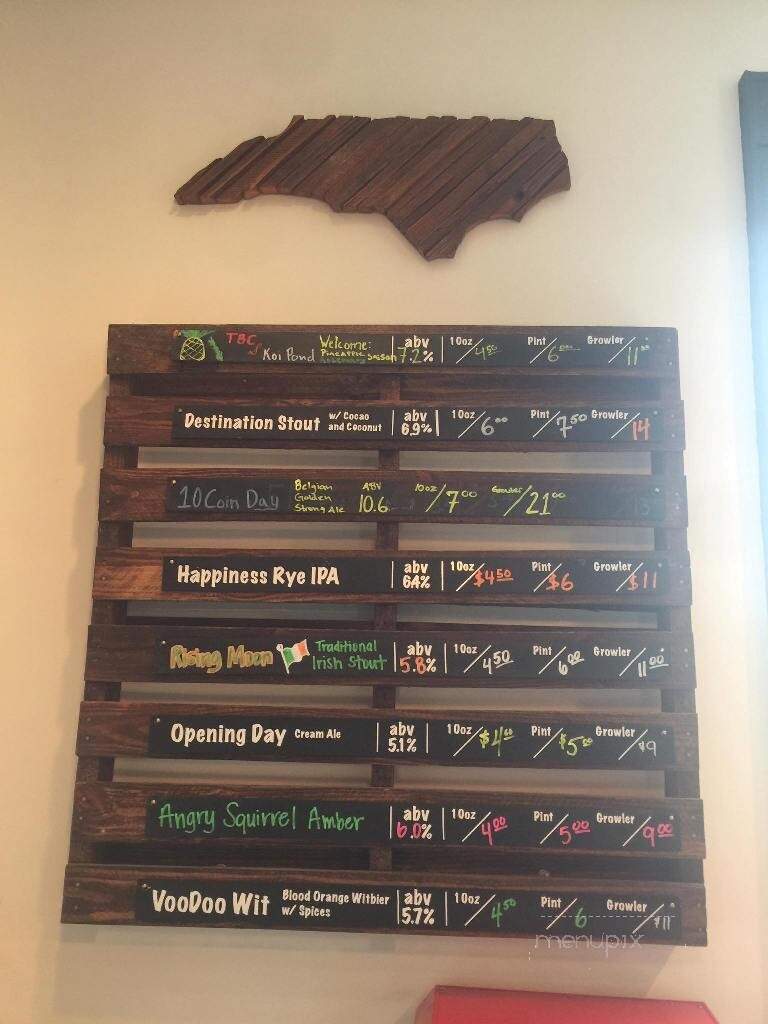 TBC's Koi Pond Welcome: Pineapple Saison abv 7.2% 10oz/4.50 Pint/6.00 Growler/11.00
Destination Stout w/ Cocao and Coconut abv 6.9% 10oz/6.00 Pint/7.50 Growler/14
10 Coin Day Belgian Golden Strong Ale ABV 10.6 10oz/7.00 Growler/21.00
Happiness Rye IPA abv 6.4% 10oz/$4.50 Pint/$6 Growler/$11
Rising Moon Traditional Irish Stout abv 5.8% 10oz/4.50 Pint/6.00 Growler/11.00
Opening Day Cream Ale abv 5.1% 10oz/$4.00 Pint/$5.00 Growler/$9
Angry Squirrel Amber abv 6.0% 10oz/4.00 Pint/5.00 Growler/9.00
VooDoo Wit Blood Orange Witbier w/ Spices abv 5.7% 10oz/4.50 Pint/6 Growler/$11
menupix